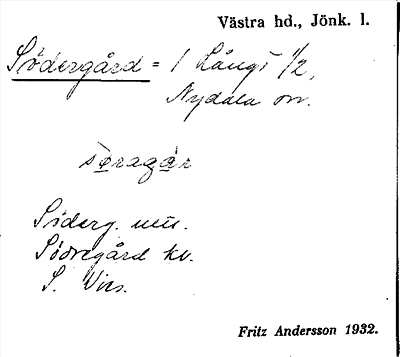 Västra hd., Jönk. l.
Södergård = 1 Långö 1/2,
Nydala sn.
söragår
Söderg. utn.
Södregård kv.
S. Vies.
Fritz Andersson 1932.